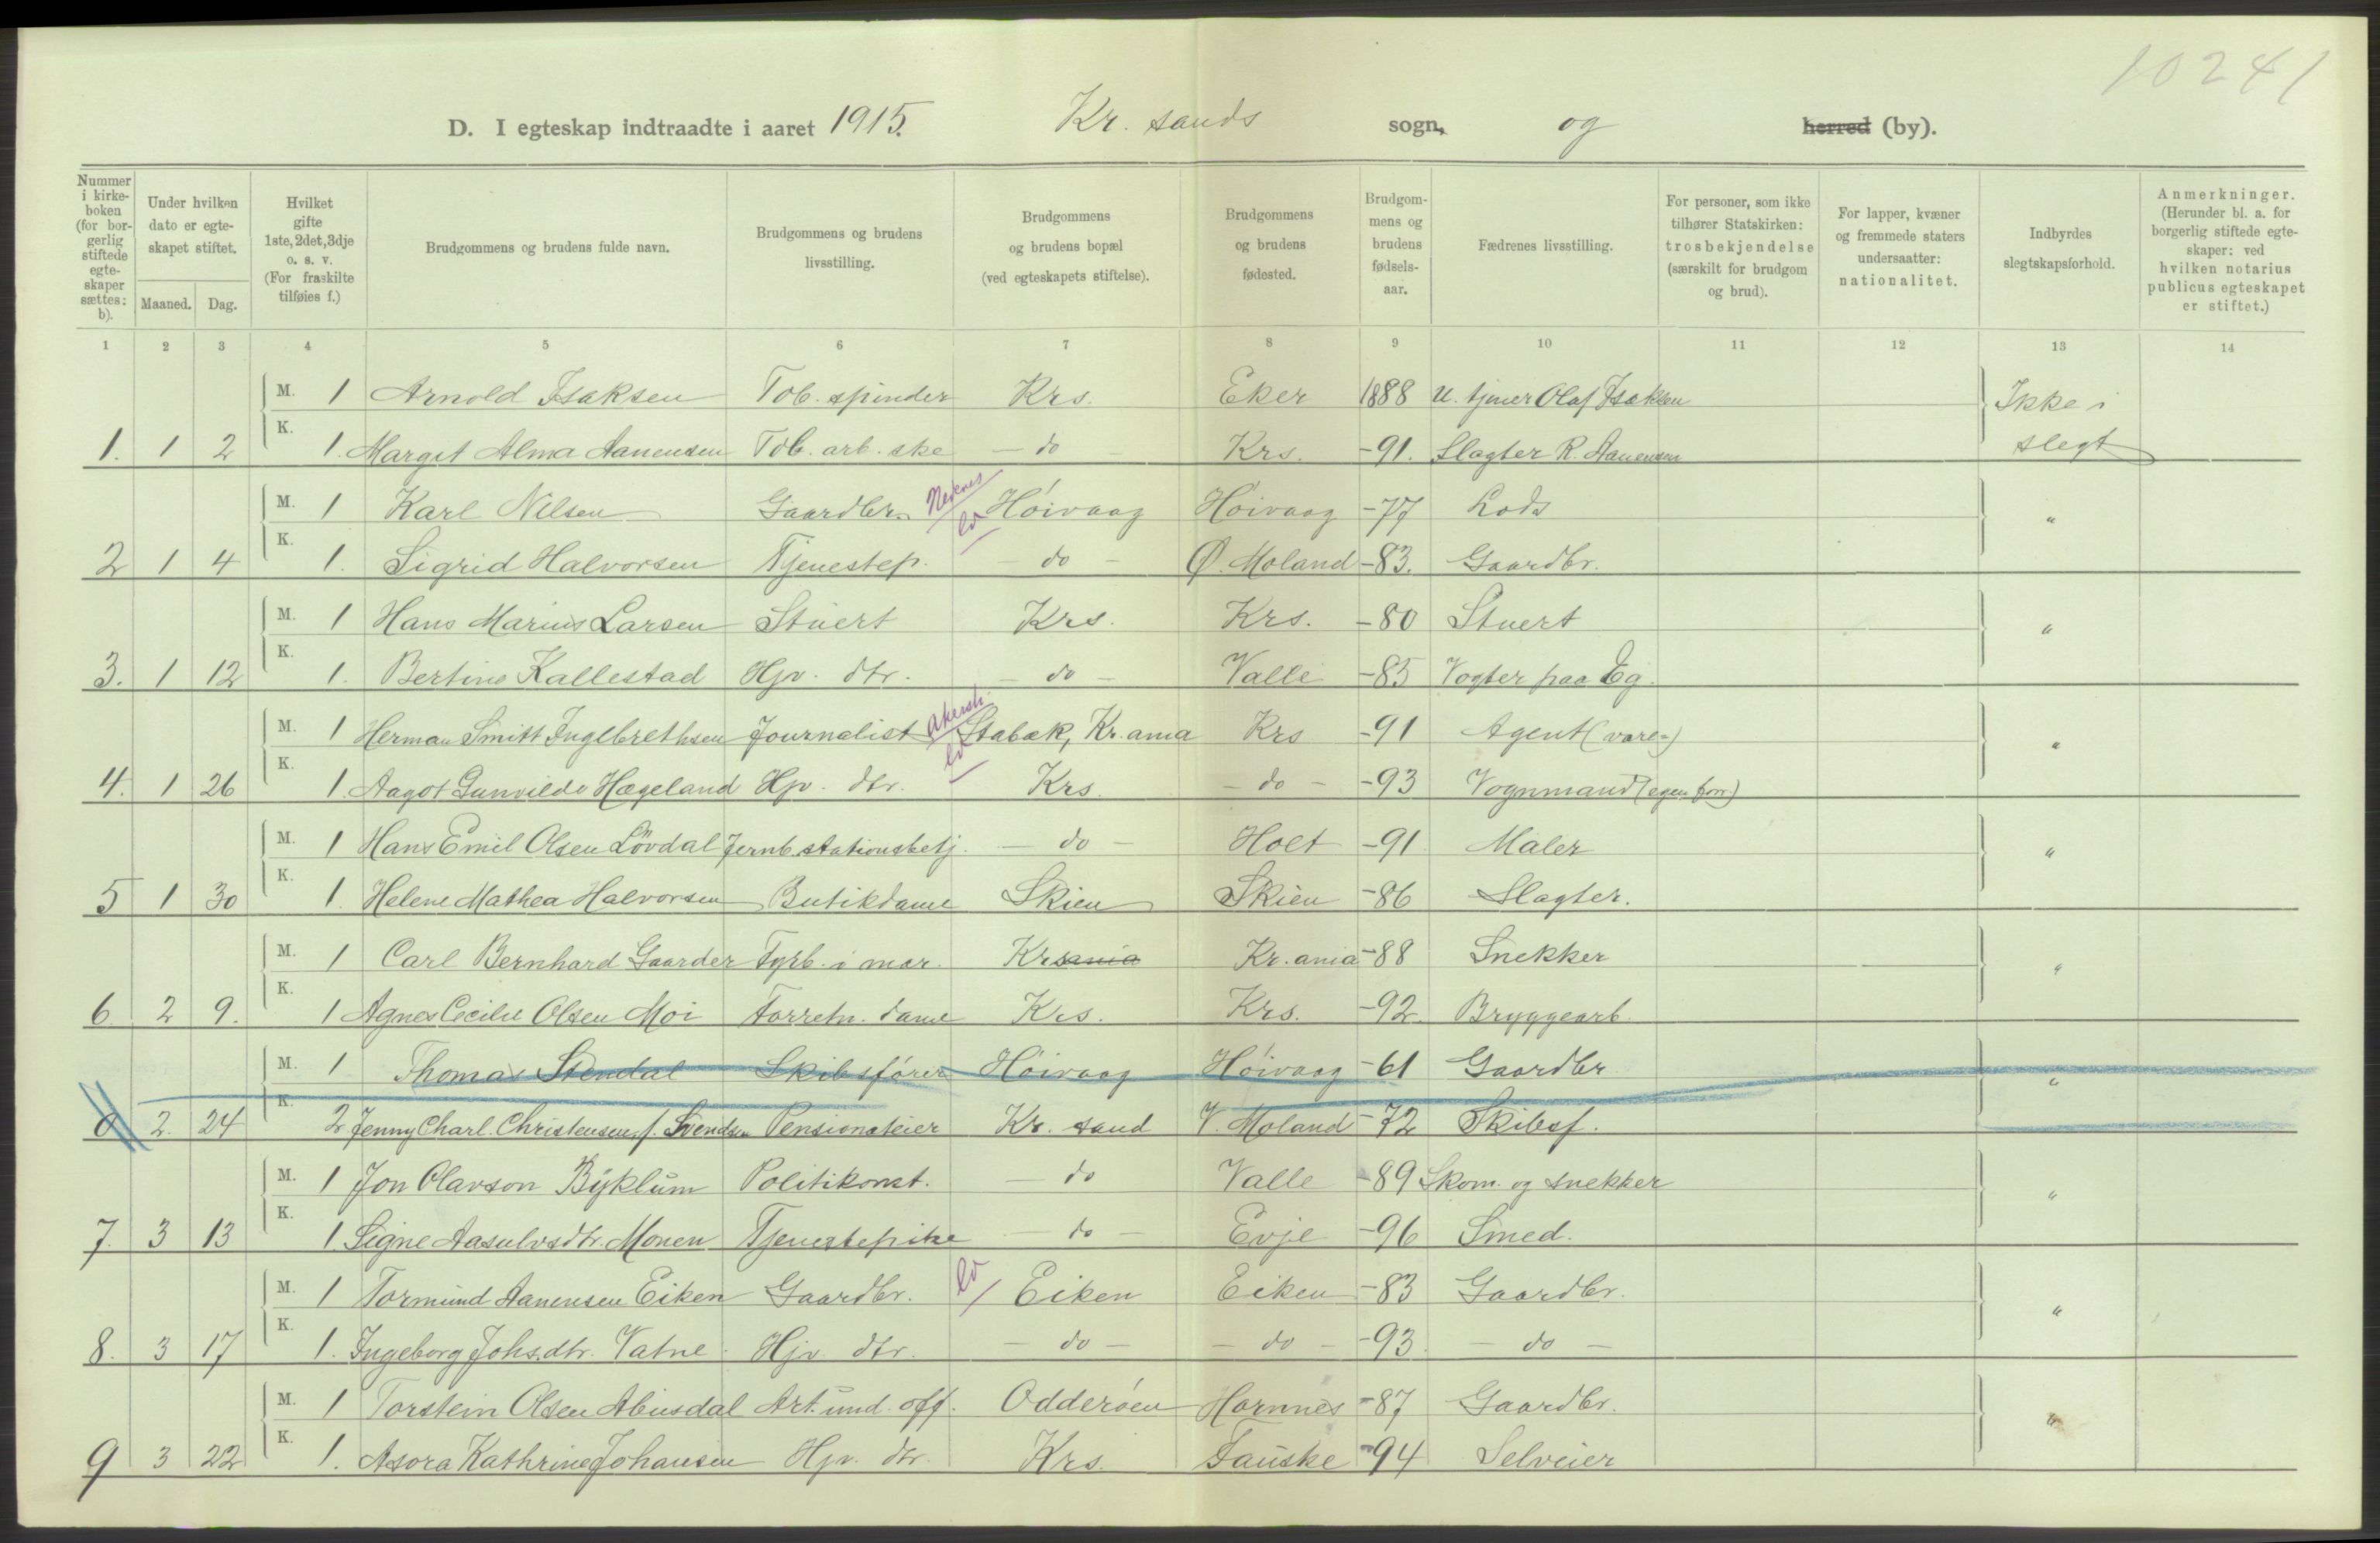 10241
D. I egteskap indtraadte i aaret 1915. Kr. sands sogn, og herred (by).
Nummer i kirkeboken (for borgerlig stiftede egteskaper sættes: b).
Under hvilken dato er egteskapet stiftet.
Maaned. Dag.
Hvilket gifte 1ste, 2det, 3dje o. s. v. (For fraskilte tilføies f.)
Brudgommens og brudens fulde navn.
Brudgommens og brudens livsstilling.
Brudgommens og brudens bopæl (ved egteskapets stiftelse).
Brudgommens og brudens fødested.
Brudgommens og brudens fødselsaar.
Fædrenes livsstilling.
For personer, som ikke tilhører Statskirken: trosbekjendelse (særskilt for brudgom og brud).
For lapper, kvæner og fremmede staters undersaatter: nationalitet.
Indbyrdes slegtskapsforhold.
Anmerkninger. (Herunder bl. a. for borgerlig stiftede egteskaper: ved hvilken notarius publicus egteskapet er stiftet.)
1 2 3 4 5 6 7 8 9 10 11 12 13 14
M. 1 Arnold Isaksen Tob. spinder Krs. Eker 1888 U. tjener Olaf Isaksen Ikke i
1. 1 2 K. 1. Margit Alma Aanensen Tob. arb. ske - do - Krs. -91. Slagter R. Aanensen slegt
M. 1 Karl Nilsen Gaardbr. Nedenes Høivaag Høivaag -77 Lods "
2 1 4 K. 1. Sigrid Halvorsen Tjenestep. - do - Ø. Moland -83. Gaardbr.
M. 1 Hans Marius Larsen Stuert Krs. Krs. -80 Stuert "
3. 1 12 K. 1. Bertine Kallestad Hjv. dtr. - do - Valle -85 Vogter paa Eg.
M. 1 Herman Smitt Ingebrethsen Journalist Akersh. Stabæk, Kr.ania Krs -91 Agent (vare=) "
4. 1 26 K. 1. Aagot Gunvilde Hægeland Hjv. dtr. Krs. - do - -93 Vognmand (egen forr.)
M. 1 Hans Emil Olsen Lövdal Jernb. stationsbetj. - do - Holt -91 Maler "
5 1 30 K. 1. Helene Mathea Halvorsen Butikdame Skien Skien -86 Slagter.
M. 1 Carl Bernhard Gaarder Fyrb. i mar. Krsania Kr.ania -88 Snekker "
6 2 9. K. 1 Agnes Cecilie Olsen Moi Forretn. dame Krs. Krs. -92. Bryggearb.
M. 1 Thomas Stendal Skibsfører Høivaag Høivaag -61 Gaardbr "
0 2. 24 K. 2 Jenny Charl. Christensen, f. Svendsen Pensionateier Kr. sand V. Moland -72 Skibsf.
M. 1 Jon Olavson Byklum Politikonst. - do Valle -89 Skom. og snekker "
7. 3 13 K. 1. Signe Aasulvsdtr. Monen Tjenestepike - do - Evje -96 Smed.
M. 1 Tormund Aanensen Eiken Gaardbr. Eiken Eiken -83 Gaardbr. "
8. 3 17 K. 1. Ingeborg Johs.dtr. Vatne Hjv dtr. - do - - do - -93 - do -
M. 1 Torstein Olsen Abusdal Art. und. off. Odderøen Hornnes -87 Gaardbr. "
9 3 22 K. 1. Asora Kathrine Johansen Hjv. dtr. Krs. Fauske -94 Selveier